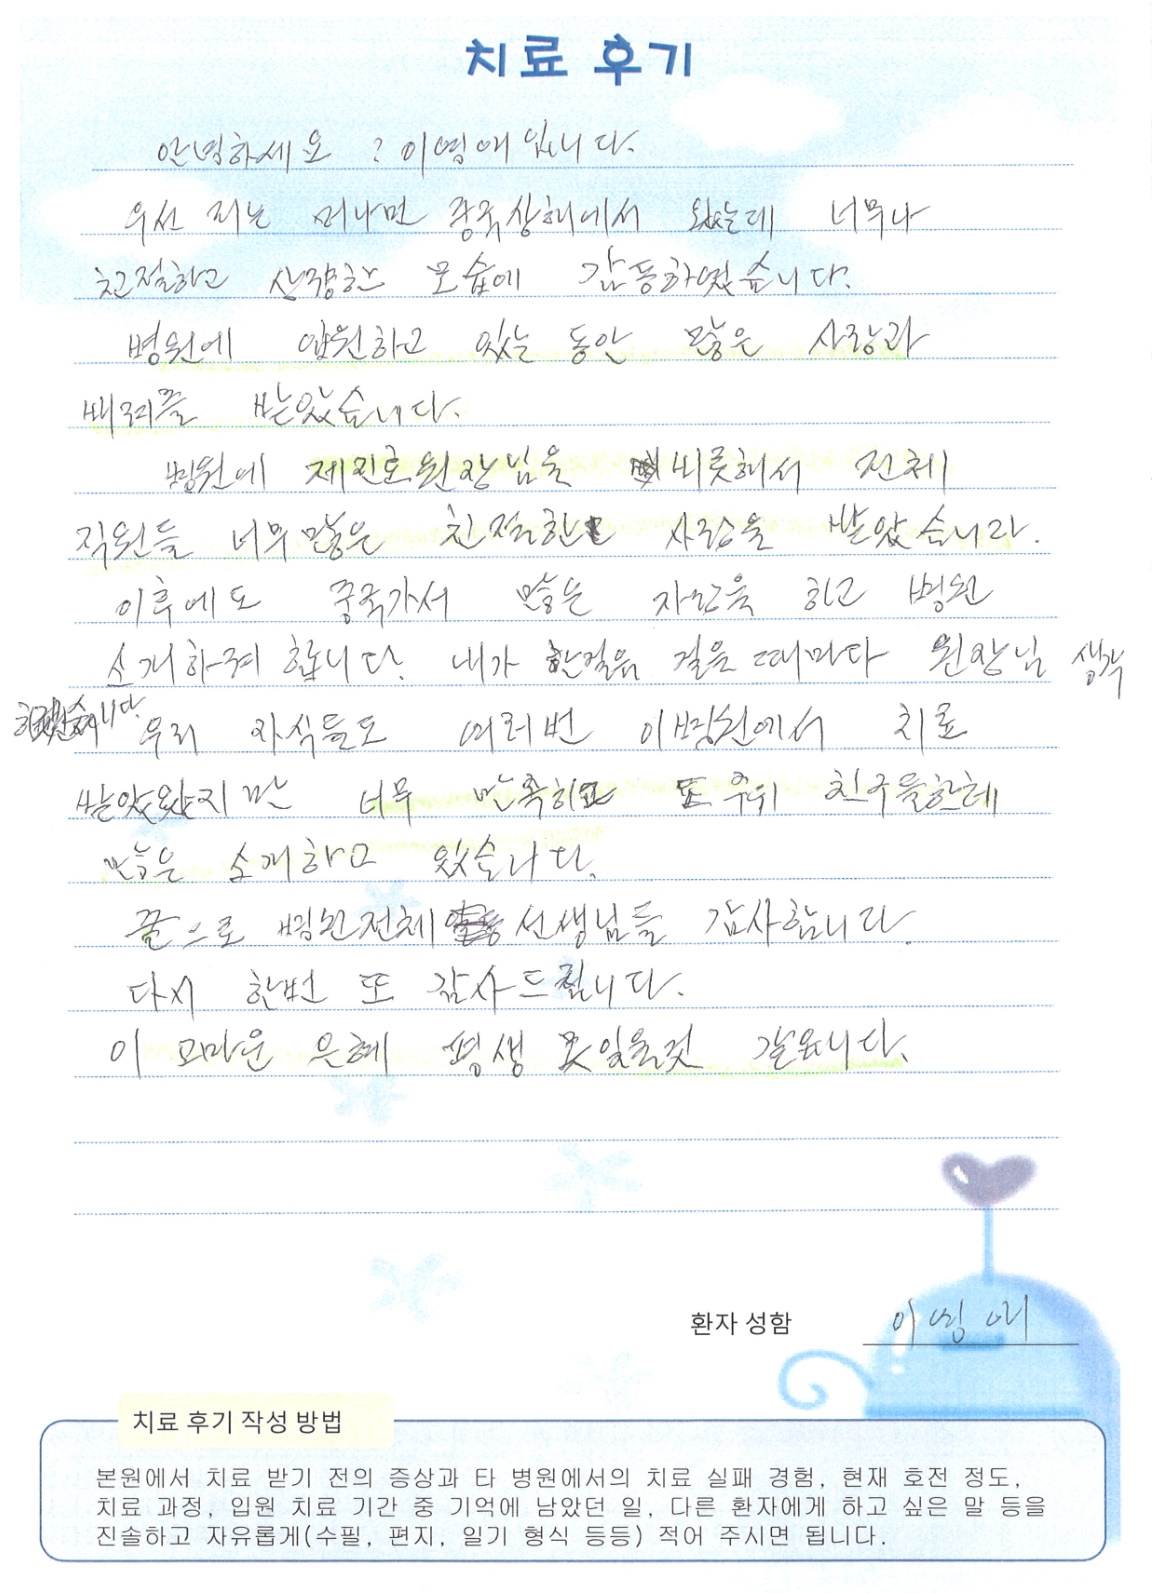 치료 후기
안녕하세요 ? 이영애입니다.
우선 저는 머나먼 중국상해에서 왔는데 너무나
친절하고 상량한 모습에 감동하였습니다.
병원에 입원하고 있는 동안 많은 사랑과
배려를 받았습니다.
병원에 제진호원장님을 비롯해서 전체
직원들 너무많은 친절한 사랑을 받았습니다.
이후에도 중국가서 많은 자랑을 하고 병원
소개하려 합니다. 내가 한걸음 걸을때마다 원장님 생각
우리 자식들도 여러번 이병원에서 치료
받았왔지만 너무 만족하고 또 주위 친구들한테
많은 소개하고 있습니다.
끝으로 병원전체 선생님들 감사합니다.
다시 한번 또 감사드립니다.
이 고마운 은혜 평생 못잊을것 같읍니다.
환자 성함 이영애
치료 후기 작성 방법
본원에서 치료 받기 전의 증상과 타 병원에서의 치료 실패 경험, 현재 호전 정도,
치료 과정, 입원 치료 기간 중 기억에 남았던 일, 다른 환자에게 하고 싶은 말 등을
진솔하고 자유롭게(수필, 편지, 일기 형식 등등) 적어 주시면 됩니다.